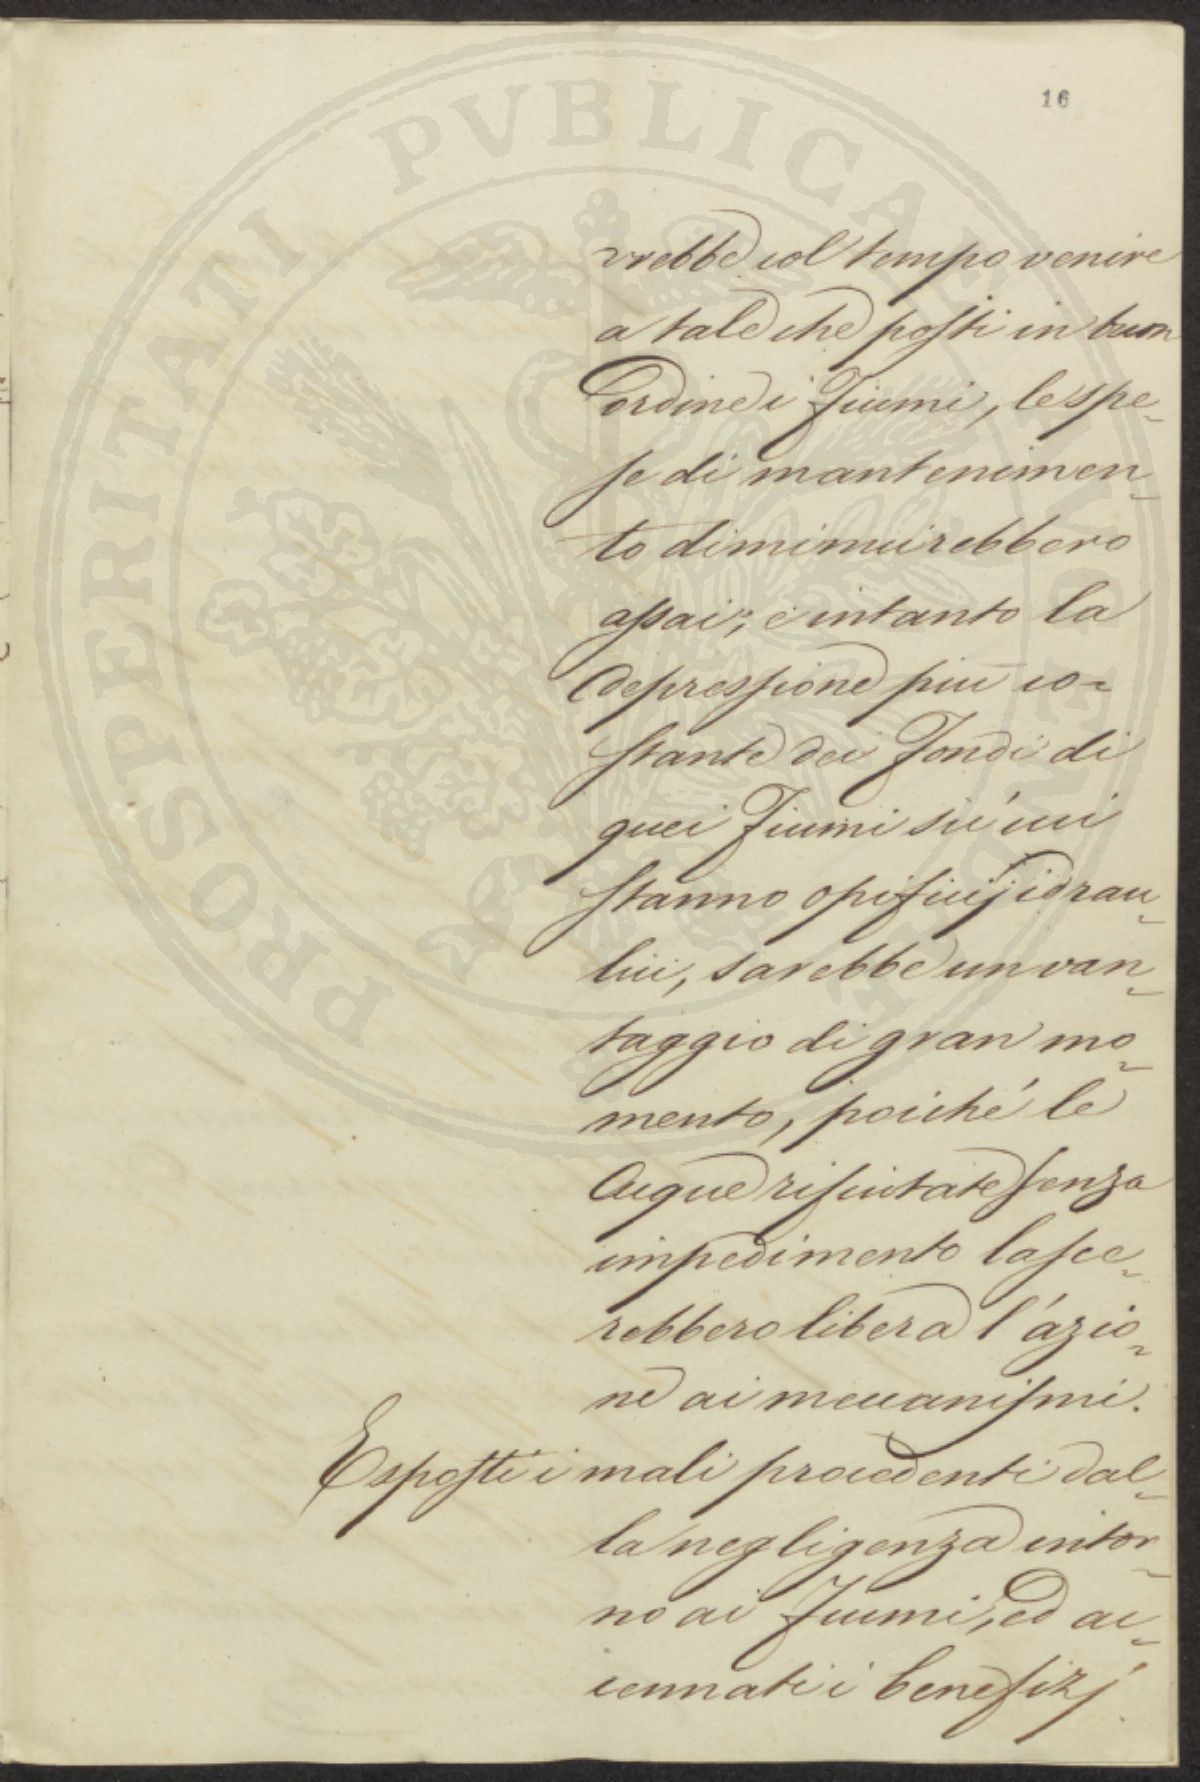 16
PROSPERITATI PVBLICAE AVGENDAE
vrebbe col tempo venire
a tale che posti in buon
ordine i Fiumi, le spe-
se di mantenimen-
to diminuirebbero
assai; e intanto la
depressione più co-
stante dei Fondi di
quei Fiumi su' cui
stanno opificij idrau-
lici, sarebbe un van-
taggio di gran mo-
mento, poiché le
Acque rifiutate senza
impedimento lasce-
rebbero libera l'azio-
ne ai meccanismi.
Esposti i mali procedenti dal-
la negligenza intor-
no ai Fiumi, ed ac-
cennati i benefizj